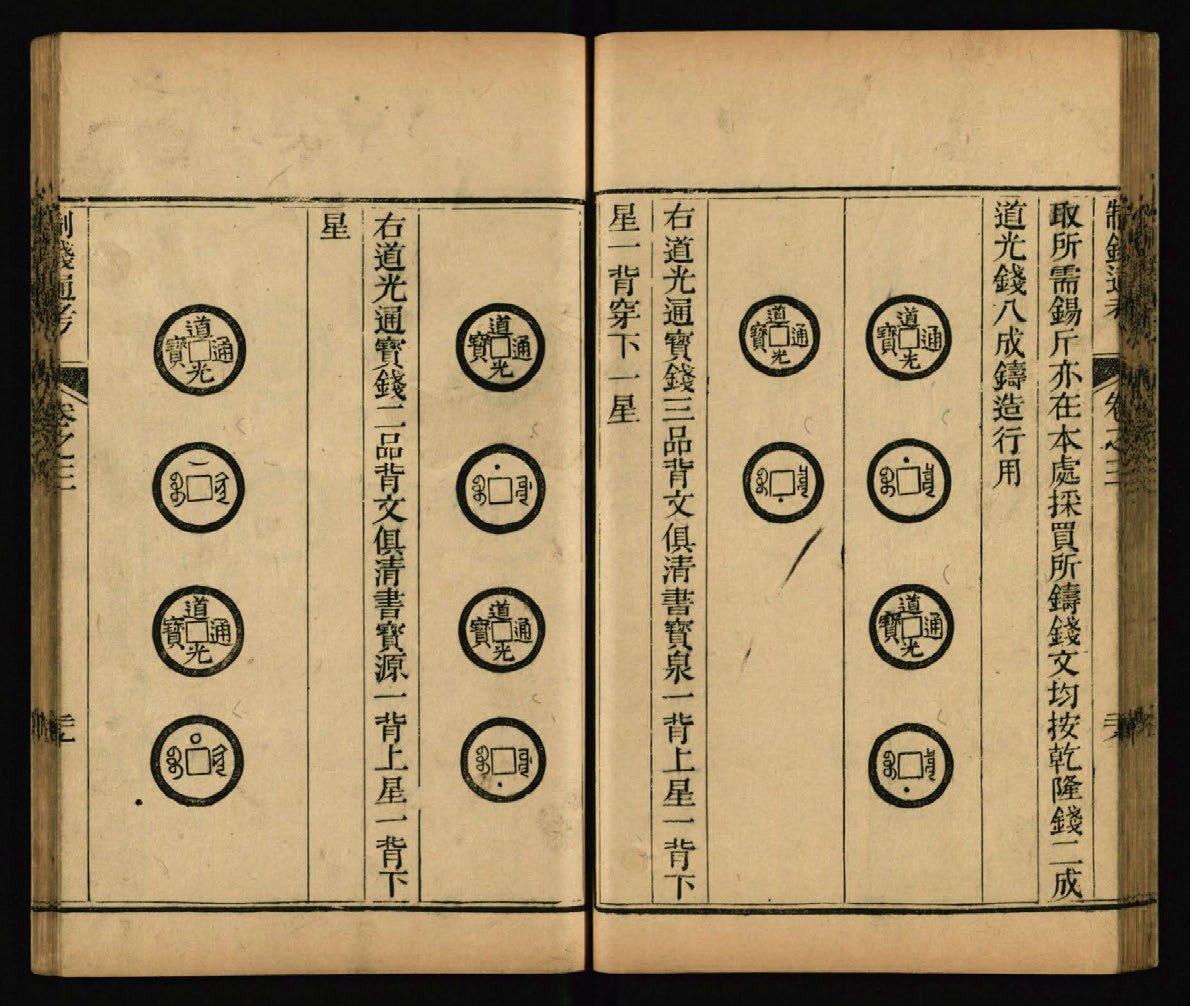 制錢通考 卷之三
取所需錫斤亦在本處採買所鑄錢文均按乾隆錢二成
道光錢八成鑄造行用
道光通寶
道光通寶
道光通寶
右道光通寶錢三品背文俱清書寶泉一背上星一背下
星一背穿下一星
道光通寶
道光通寶
右道光通寶錢二品背文俱清書寶源一背上星一背下
星
道光通寶
道光通寶
制錢通考 卷之三